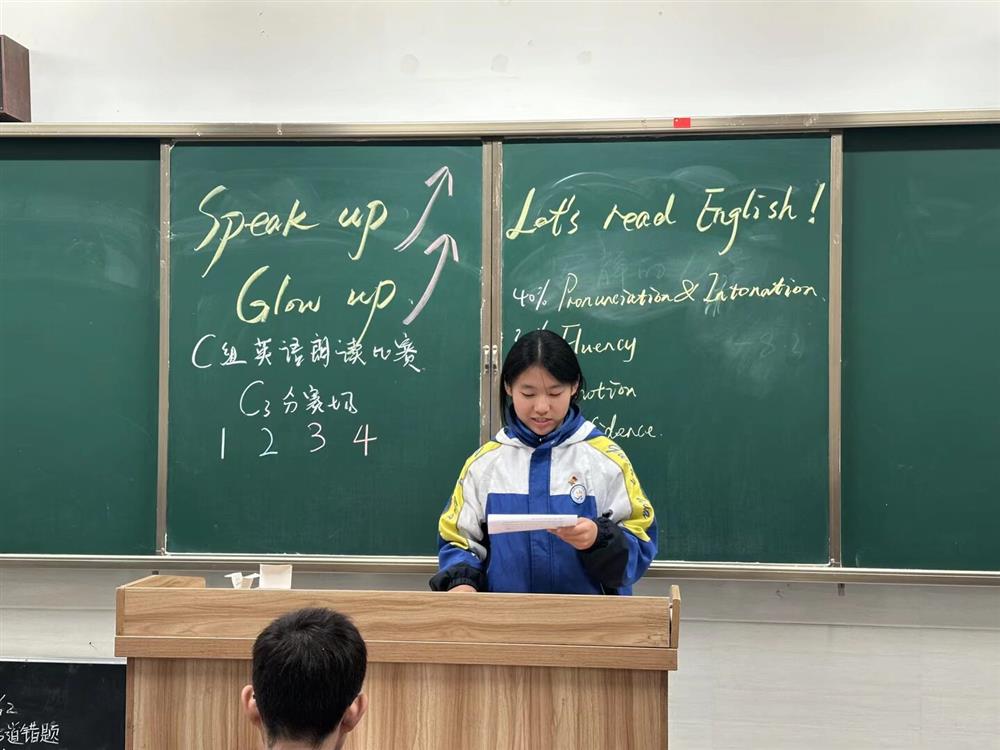 Speak up
Glow up
C组英语朗读比赛
C3分赛场
1 2 3 4
Let's read English!
40% Pronunciation & Intonation
Fluency
道错题